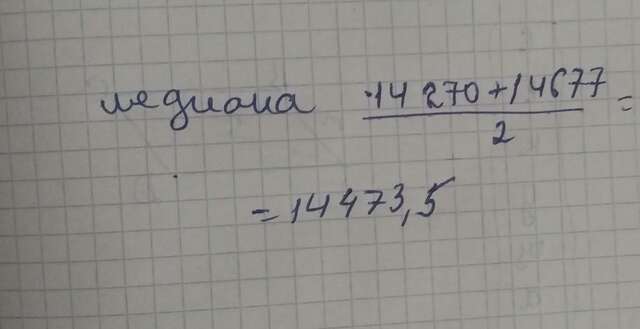 медиана 14 270 + 14677 / 2 =
= 14473,5